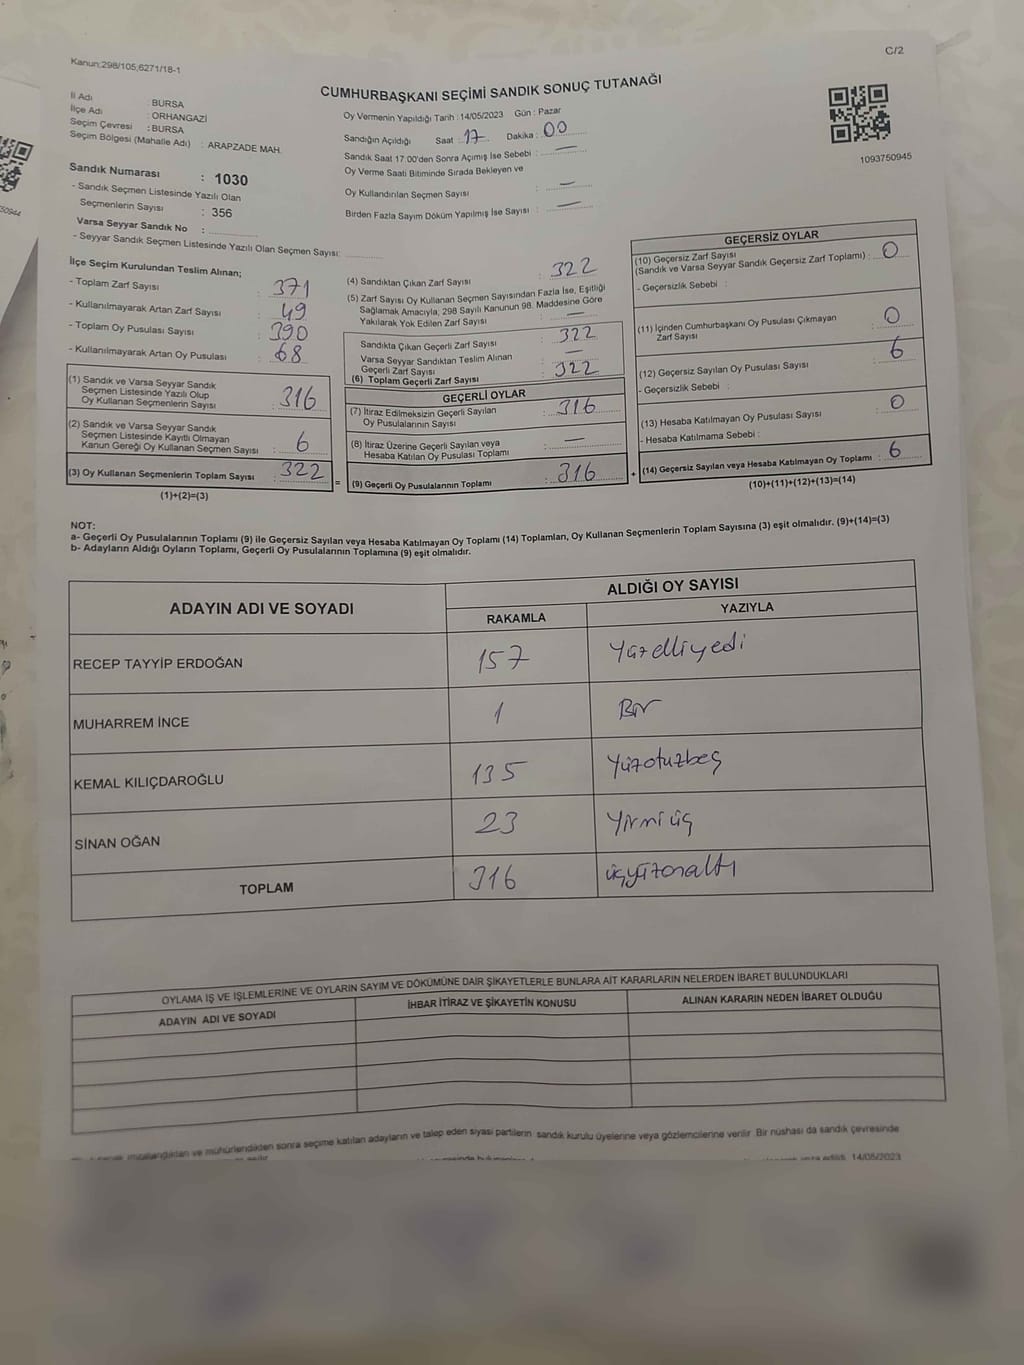 C/2
Kanun;298/105,6271/18-1
CUMHURBAŞKANI SEÇİMİ SANDIK SONUÇ TUTANAĞI
İl Adı : BURSA
İlçe Adı : ORHANGAZİ
Seçim Çevresi : BURSA
Seçim Bölgesi (Mahalle Adı) : ARAPZADE MAH.
Sandık Numarası : 1030
- Sandık Seçmen Listesinde Yazılı Olan
Seçmenlerin Sayısı : 356
Varsa Seyyar Sandık No :
- Seyyar Sandık Seçmen Listesinde Yazılı Olan Seçmen Sayısı:
Oy Vermenin Yapıldığı Tarih : 14/05/2023 Gün : Pazar
Sandığın Açıldığı Saat : 17 Dakika : 00
Sandık Saat 17:00'den Sonra Açımış İse Sebebi : —
Oy Verme Saati Bitiminde Sırada Bekleyen ve
Oy Kullandırılan Seçmen Sayısı : —
Birden Fazla Sayım Döküm Yapılmış İse Sayısı : —
1093750945
İlçe Seçim Kurulundan Teslim Alınan;
- Toplam Zarf Sayısı : 371
- Kullanılmayarak Artan Zarf Sayısı : 49
- Toplam Oy Pusulası Sayısı : 390
- Kullanılmayarak Artan Oy Pusulası : 68
(1) Sandık ve Varsa Seyyar Sandık
Seçmen Listesinde Yazılı Olup
Oy Kullanan Seçmenlerin Sayısı : 316
(2) Sandık ve Varsa Seyyar Sandık
Seçmen Listesinde Kayıtlı Olmayan
Kanun Gereği Oy Kullanan Seçmen Sayısı : 6
(3) Oy Kullanan Seçmenlerin Toplam Sayısı : 322
(1)+(2)=(3)
(4) Sandıktan Çıkan Zarf Sayısı : 322
(5) Zarf Sayısı Oy Kullanan Seçmen Sayısından Fazla İse, Eşitliği
Sağlamak Amacıyla, 298 Sayılı Kanunun 98. Maddesine Göre
Yakılarak Yok Edilen Zarf Sayısı : —
Sandıkta Çıkan Geçerli Zarf Sayısı : 322
Varsa Seyyar Sandıktan Teslim Alınan
Geçerli Zarf Sayısı : —
(6) Toplam Geçerli Zarf Sayısı : 322
GEÇERLİ OYLAR
(7) İtiraz Edilmeksizin Geçerli Sayılan
Oy Pusulalarının Sayısı : 316
(8) İtiraz Üzerine Geçerli Sayılan veya
Hesaba Katılan Oy Pusulası Toplamı : —
= (9) Geçerli Oy Pusulalarının Toplamı : 316 +
GEÇERSİZ OYLAR
(10) Geçersiz Zarf Sayısı
(Sandık ve Varsa Seyyar Sandık Geçersiz Zarf Toplamı) : 0
- Geçersizlik Sebebi :
(11) İçinden Cumhurbaşkanı Oy Pusulası Çıkmayan
Zarf Sayısı : 0
(12) Geçersiz Sayılan Oy Pusulası Sayısı : 6
- Geçersizlik Sebebi :
(13) Hesaba Katılmayan Oy Pusulası Sayısı : 0
- Hesaba Katılmama Sebebi :
(14) Geçersiz Sayılan veya Hesaba Katılmayan Oy Toplamı : 6
(10)+(11)+(12)+(13)=(14)
NOT:
a- Geçerli Oy Pusulalarının Toplamı (9) ile Geçersiz Sayılan veya Hesaba Katılmayan Oy Toplamı (14) Toplamları, Oy Kullanan Seçmenlerin Toplam Sayısına (3) eşit olmalıdır. (9)+(14)=(3)
b- Adayların Aldığı Oyların Toplamı, Geçerli Oy Pusulalarının Toplamına (9) eşit olmalıdır.
ADAYIN ADI VE SOYADI ALDIĞI OY SAYISI
RAKAMLA YAZIYLA
RECEP TAYYİP ERDOĞAN 157 Yüzelliyedi
MUHARREM İNCE 1 Bir
KEMAL KILIÇDAROĞLU 135 Yüzotuzbeş
SİNAN OĞAN 23 Yirmiüç
TOPLAM 316 üçyüzonaltı
OYLAMA İŞ VE İŞLEMLERİNE VE OYLARIN SAYIM VE DÖKÜMÜNE DAİR ŞİKAYETLERLE BUNLARA AİT KARARLARIN NELERDEN İBARET BULUNDUKLARI
ADAYIN ADI VE SOYADI İHBAR İTİRAZ VE ŞİKAYETİN KONUSU ALINAN KARARIN NEDEN İBARET OLDUĞU
ve mühürlendikten sonra seçime katılan adayların ve talep eden siyasi partilerin sandık kurulu üyelerine veya gözlemcilerine verilir. Bir nüshası da sandık çevresinde
14/05/2023